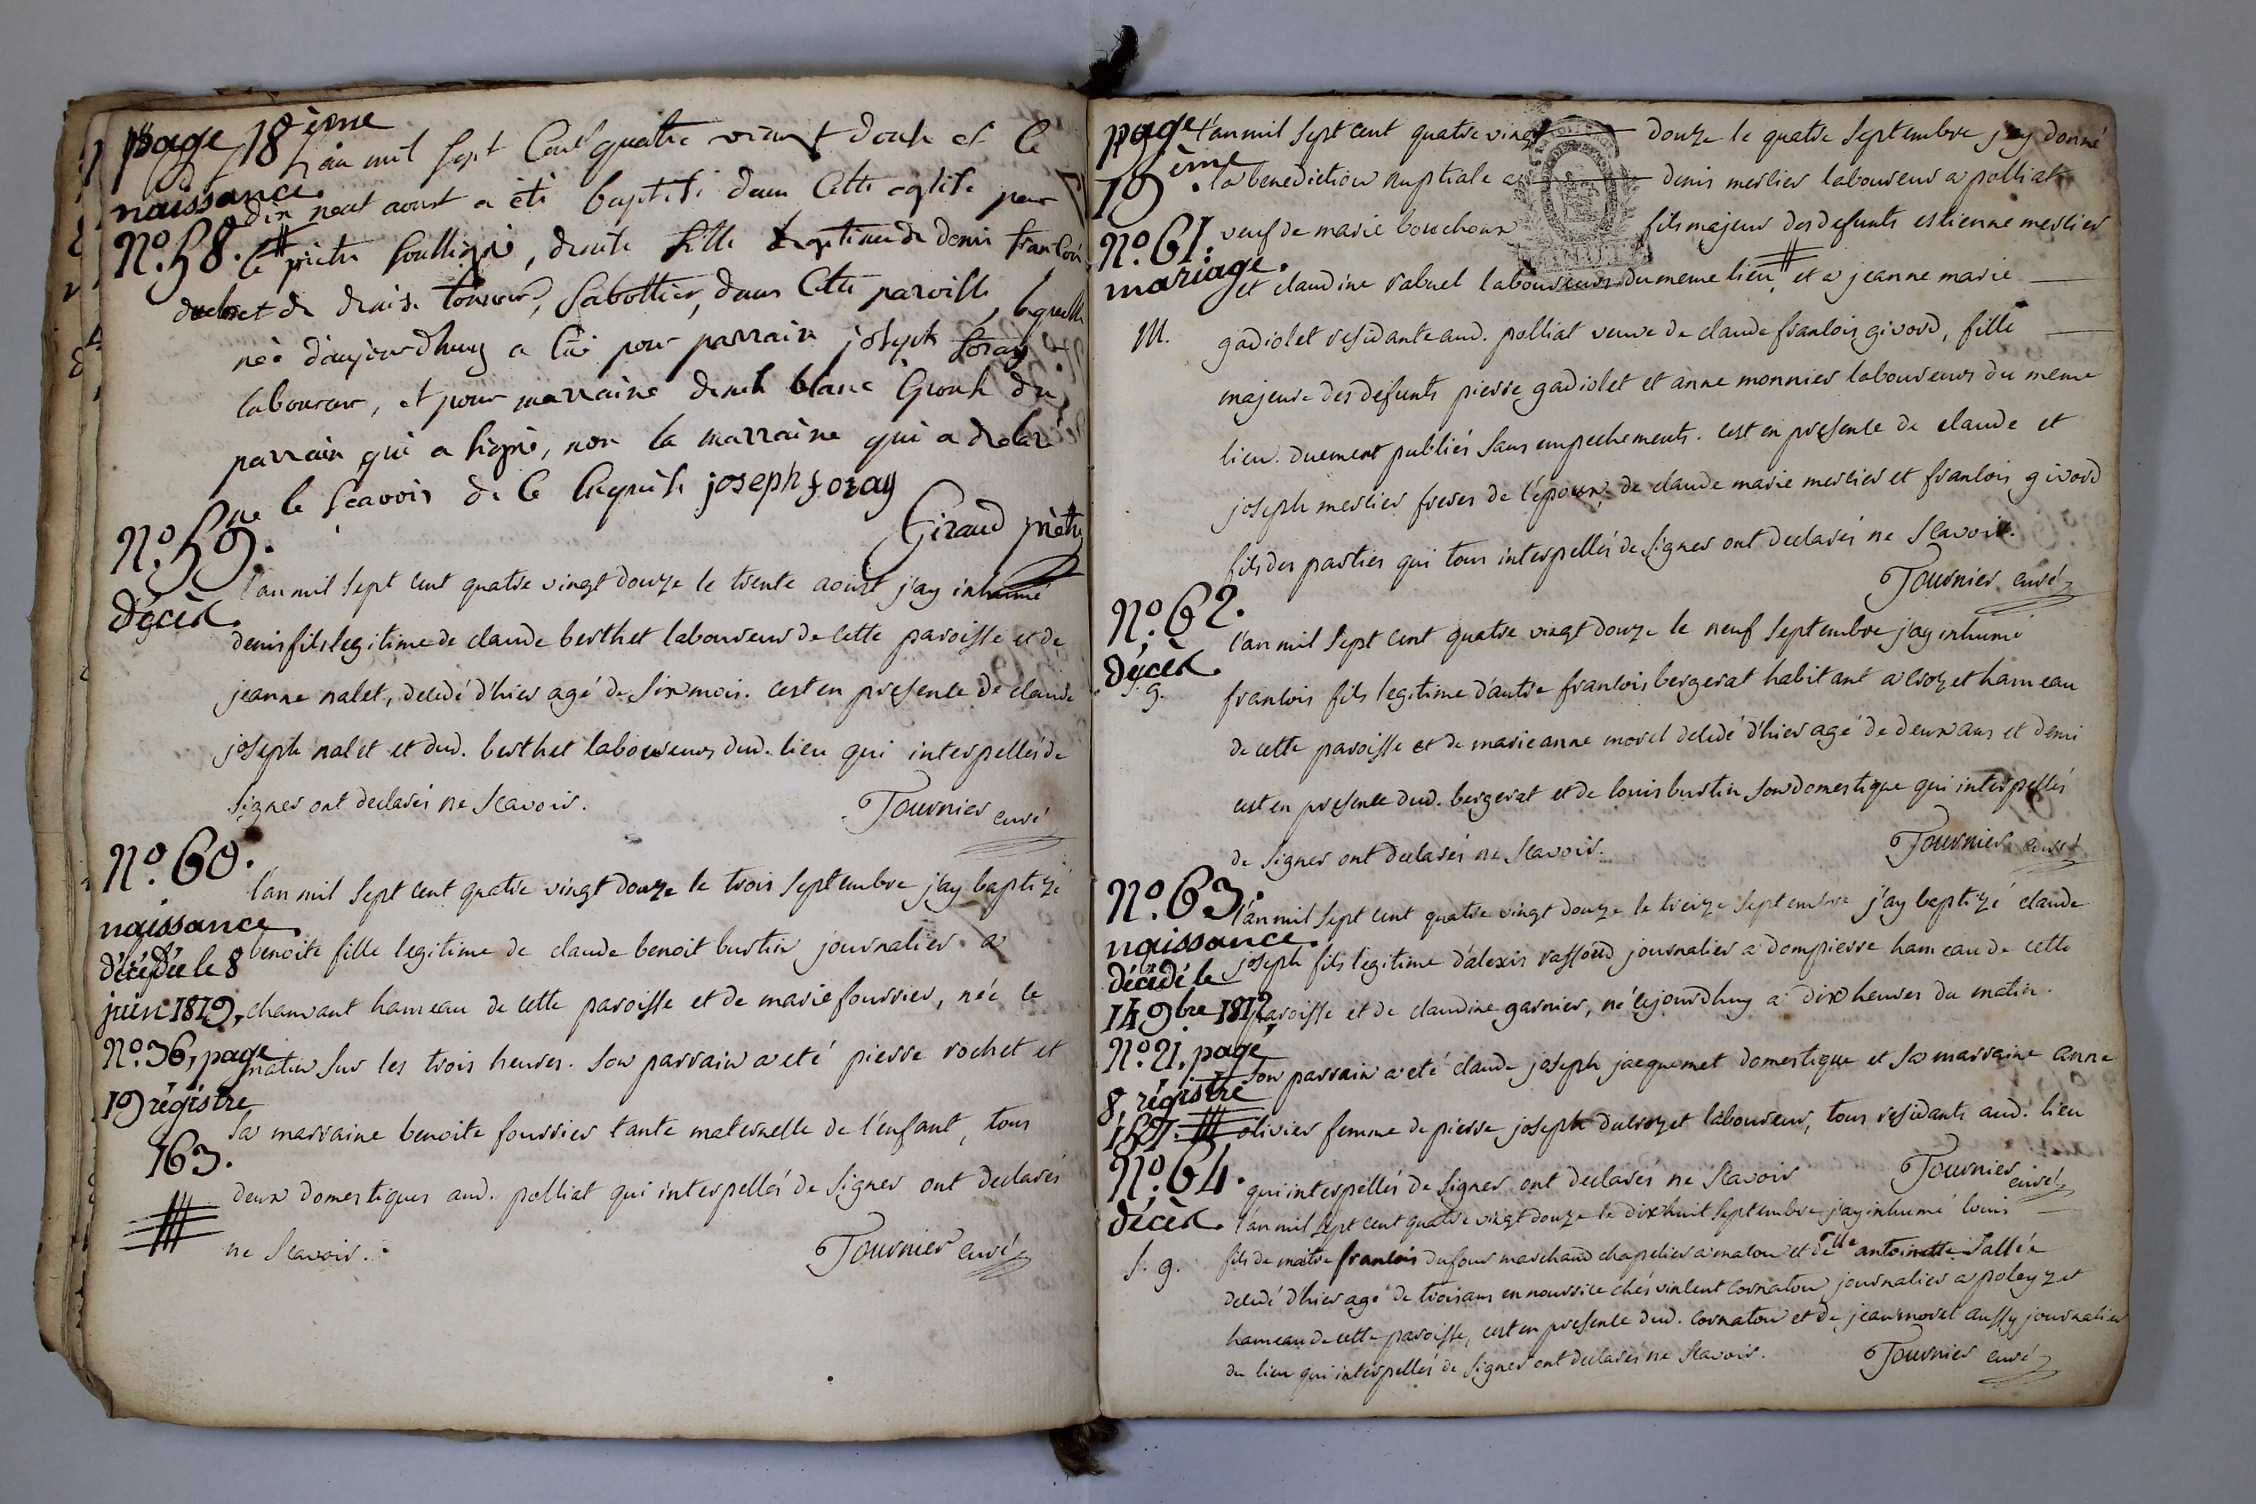 page 18ème
l'an mil sept cent quatre vingt douze et le
naissance.
dix neuf aoust a été baptisé dans cette eglise par
N.º 58.
le prêtre soussigné, denise fille legitime de denis francois
de denise, sabottier, dans cette paroisse, laquelle
née d'aujourdhuy a eu pour parrain joseph foray
laboureur, et pour marraine denise blanc épouse du
parrain qui a signé, non la marraine qui a declaré
ne le scavoir de ce enquise joseph foray
Giraud prêtre
N.º 59.
l'an mil sept cent quatre vingt douze le trente aoust j'ay inhumé
décès.
denis fils legitime de claude berthet laboureur de cette paroisse et de
jeanne nalet, decedé d'hier agé de six mois. c'est en presence de claude
joseph nalet et dud. berthet laboureurs dud. lieu qui interpellés de
signer ont declarés ne scavoir.
Tournier curé
N.º 60.
l'an mil sept cent quatre vingt douze le trois septembre j'ay baptizé
naissance.
benoite fille legitime de claude benoit burtin journalier a
décédée le 8
juin 1819,
chamvant hameau de cette paroisse et de marie fourrier, née ce
N.º 36, page
matin sur les trois heures. son parrain a eté pierre rochet et
19 régistre
sa marraine benoite fourrier tante maternelle de l'enfant, tous
163.
deux domestiques aud. polliat qui interpellés de signer ont declarés
ne scavoir.
Tournier curé
page
19ème.
l'an mil sept cent quatre vingt douze le quatre septembre j'ay donné
la benediction nuptiale a denis merlier laboureur a polliat
N.º 61.
veuf de marie bouchoux fils majeur des defunts estienne merlier
mariage.
et claudine rabuel laboureurs du meme lieu, et a jeanne marie
M.
gadiolet residante aud. polliat veuve de claude francois givord, fille
majeure des defunts pierre gadiolet et anne monnier laboureurs du meme
lieu. duement publiés sans empechements. c'est en presence de claude et
joseph merlier freres de l'époux, de claude marie merlier et francois givord
fils des parties qui tous interpellés de signer ont declarés ne scavoir.
Tournier curé
N.º 62.
l'an mil sept cent quatre vingt douze le neuf septembre j'ay inhumé
décès.
g.
francois fils legitime d'autre francois bergerat habitant a crozet hameau
de cette paroisse et de marie anne morel decedé d'hier agé de deux ans et demi
c'est en presence dud. bergerat et de louis burtin son domestique qui interpellés
de signer ont declarés ne scavoir.
Tournier curé
N.º 63.
l'an mil sept cent quatre vingt douze le treize septembre j'ay baptizé claude
naissance.
joseph fils legitime d'alexis raffoud journalier a dompierre hameau de cette
décédé le
14 9bre 1812,
paroisse et de claudine garnier, né cejourdhuy a dix heures du matin.
N.º 21, page
son parrain a eté claude joseph jacquemet domestique et sa marraine anne
8, régistre
157.
olivier femme de pierre joseph ducrozet laboureur, tous residants aud. lieu
N.º 64.
qui interpellés de signer ont declarés ne scavoir
Tournier curé
décès.
l'an mil sept cent quatre vingt douze le dix huit septembre j'ay inhumé louis
s. g.
fils de maître francois dufour marchand chapelier a macon et de dlle antoinette sallée
decedé d'hier agé de trois ans en nourrice chés vincent cornaton journalier a polezet
hameau de cette paroisse, c'est en presence dud. cornaton et de jean morel aussy journalier
du lieu qui interpellés de signer ont declarés ne scavoir.
Tournier curé